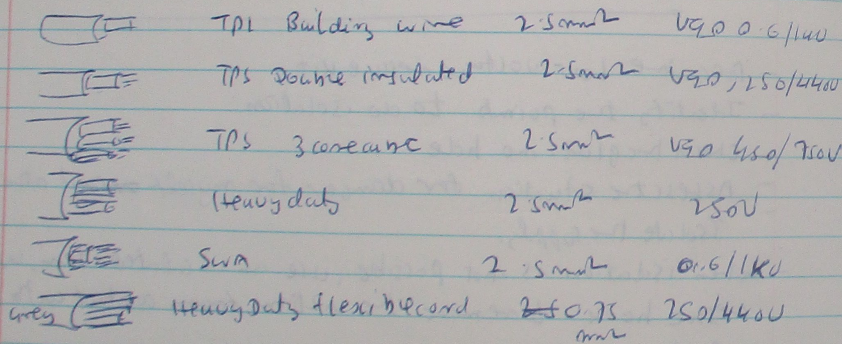 TPI Building wire 2.5mm² V90 0.6/1kV
TPS Double insulated 2.5mm² V90, 250/440V
TPS 3core 2.5mm² V90 450/750V
Heavy duty 2.5mm² 250V
SWA 2.5mm² 0.6/1KV
Grey Heavy Duty flexible cord 0.75 250/440V
mm²